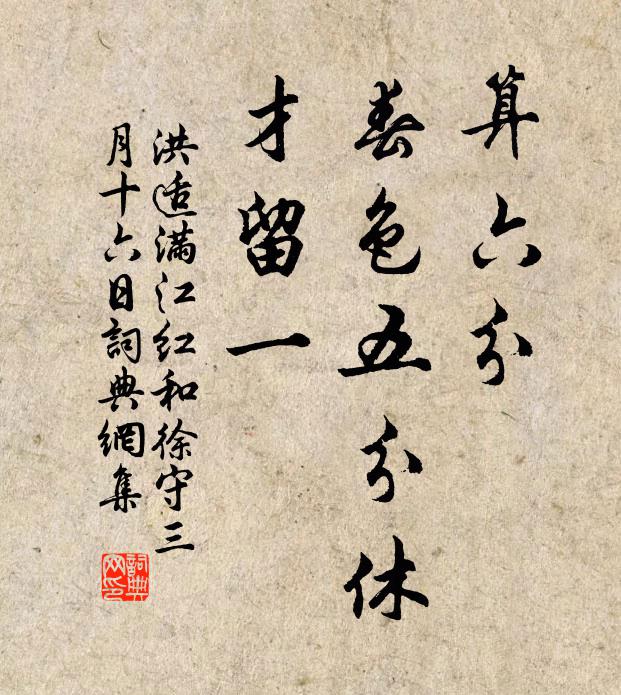 算六分
春色五分休
才留一
洪适满江红和徐守三
月十六日詞典網集
詞典网印